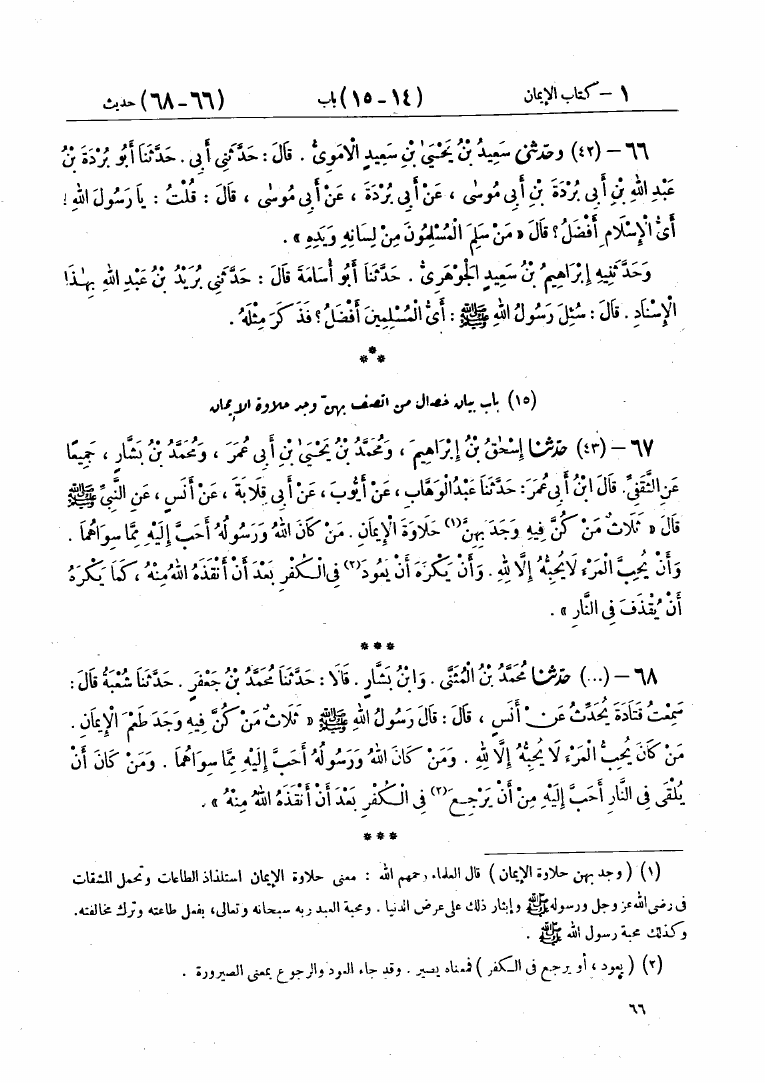 ١ – كتاب الإيمان (١٤ – ١٥) باب (٦٦ – ٦٨) حديث
٦٦ – (٤٢) وحَدَّثَنِي سَعِيدُ بْنُ يَحْيَىٰ بْنِ سَعِيدٍ الْأَمَوِيُّ . قَالَ : حَدَّثَنِي أَبِي . حَدَّثَنَا أَبُو بُرْدَةَ بْنُ
عَبْدِ اللهِ بْنِ أَبِي بُرْدَةَ بْنِ أَبِي مُوسَى ، عَنْ أَبِي بُرْدَةَ ، عَنْ أَبِي مُوسَى ، قَالَ : قُلْتُ : يَا رَسُولَ اللهِ !
أَيُّ الْإِسْلَامِ أَفْضَلُ ؟ قَالَ « مَنْ سَلِمَ الْمُسْلِمُونَ مِنْ لِسَانِهِ وَيَدِهِ » .
وَحَدَّثَنِيهِ إِبْرَاهِيمُ بْنُ سَعِيدٍ الْجَوْهَرِيُّ . حَدَّثَنَا أَبُو أُسَامَةَ قَالَ : حَدَّثَنِي بُرَيْدُ بْنُ عَبْدِ اللهِ بِهٰذَا
الْإِسْنَادِ . قَالَ : سُئِلَ رَسُولُ اللهِ ﷺ : أَيُّ الْمُسْلِمِينَ أَفْضَلُ ؟ فَذَكَرَ مِثْلَهُ .
***
(١٥) باب بيان خصال من اتصف بهنّ وجد حلاوة الإيمان
٦٧ – (٤٣) حَدَّثَنَا إِسْحَقُ بْنُ إِبْرَاهِيمَ ، وَمُحَمَّدُ بْنُ يَحْيَىٰ بْنِ أَبِي عُمَرَ ، وَمُحَمَّدُ بْنُ بَشَّارٍ ، جَمِيعًا
عَنِ الثَّقَفِيِّ. قَالَ ابْنُ أَبِي عُمَرَ: حَدَّثَنَا عَبْدُ الْوَهَّابِ ، عَنْ أَيُّوبَ ، عَنْ أَبِي قِلَابَةَ ، عَنْ أَنَسٍ ، عَنِ النَّبِيِّ ﷺ
قَالَ « ثَلَاثٌ مَنْ كُنَّ فِيهِ وَجَدَ بِهِنَّ (١) حَلَاوَةَ الْإِيمَانِ . مَنْ كَانَ اللهُ وَرَسُولُهُ أَحَبَّ إِلَيْهِ مِمَّا سِوَاهُمَا .
وَأَنْ يُحِبَّ الْمَرْءَ لَا يُحِبُّهُ إِلَّا لِلهِ . وَأَنْ يَكْرَهَ أَنْ يَعُودَ (٢) فِي الْكُفْرِ بَعْدَ أَنْ أَنْقَذَهُ اللهُ مِنْهُ ، كَمَا يَكْرَهُ
أَنْ يُقْذَفَ فِي النَّارِ » .
***
٦٨ – (...) حَدَّثَنَا مُحَمَّدُ بْنُ الْمُثَنَّى . وَابْنُ بَشَّارٍ . قَالَا : حَدَّثَنَا مُحَمَّدُ بْنُ جَعْفَرٍ . حَدَّثَنَا شُعْبَةُ قَالَ :
سَمِعْتُ قَتَادَةَ يُحَدِّثُ عَنْ أَنَسٍ ، قَالَ : قَالَ رَسُولُ اللهِ ﷺ « ثَلَاثٌ مَنْ كُنَّ فِيهِ وَجَدَ طَعْمَ الْإِيمَانِ .
مَنْ كَانَ يُحِبُّ الْمَرْءَ لَا يُحِبُّهُ إِلَّا لِلهِ . وَمَنْ كَانَ اللهُ وَرَسُولُهُ أَحَبَّ إِلَيْهِ مِمَّا سِوَاهُمَا . وَمَنْ كَانَ أَنْ
يُلْقَى فِي النَّارِ أَحَبَّ إِلَيْهِ مِنْ أَنْ يَرْجِعَ (٢) فِي الْكُفْرِ بَعْدَ أَنْ أَنْقَذَهُ اللهُ مِنْهُ » .
***
(١) ( وجد بهن حلاوة الإيمان ) قال العلماء رحمهم الله : معنى حلاوة الإيمان استلذاذ الطاعات وتحمل المشقات
فى رضى الله عز وجل ورسوله ﷺ وإيثار ذلك على عرض الدنيا . ومحبة العبد ربه سبحانه وتعالى، بفعل طاعته وترك مخالفته.
وكذلك محبة رسول الله ﷺ .
(٢) ( يعود ، أو يرجع فى الكفر ) فمعناه يصير . وقد جاء العود والرجوع بمعنى الصيرورة .
٦٦